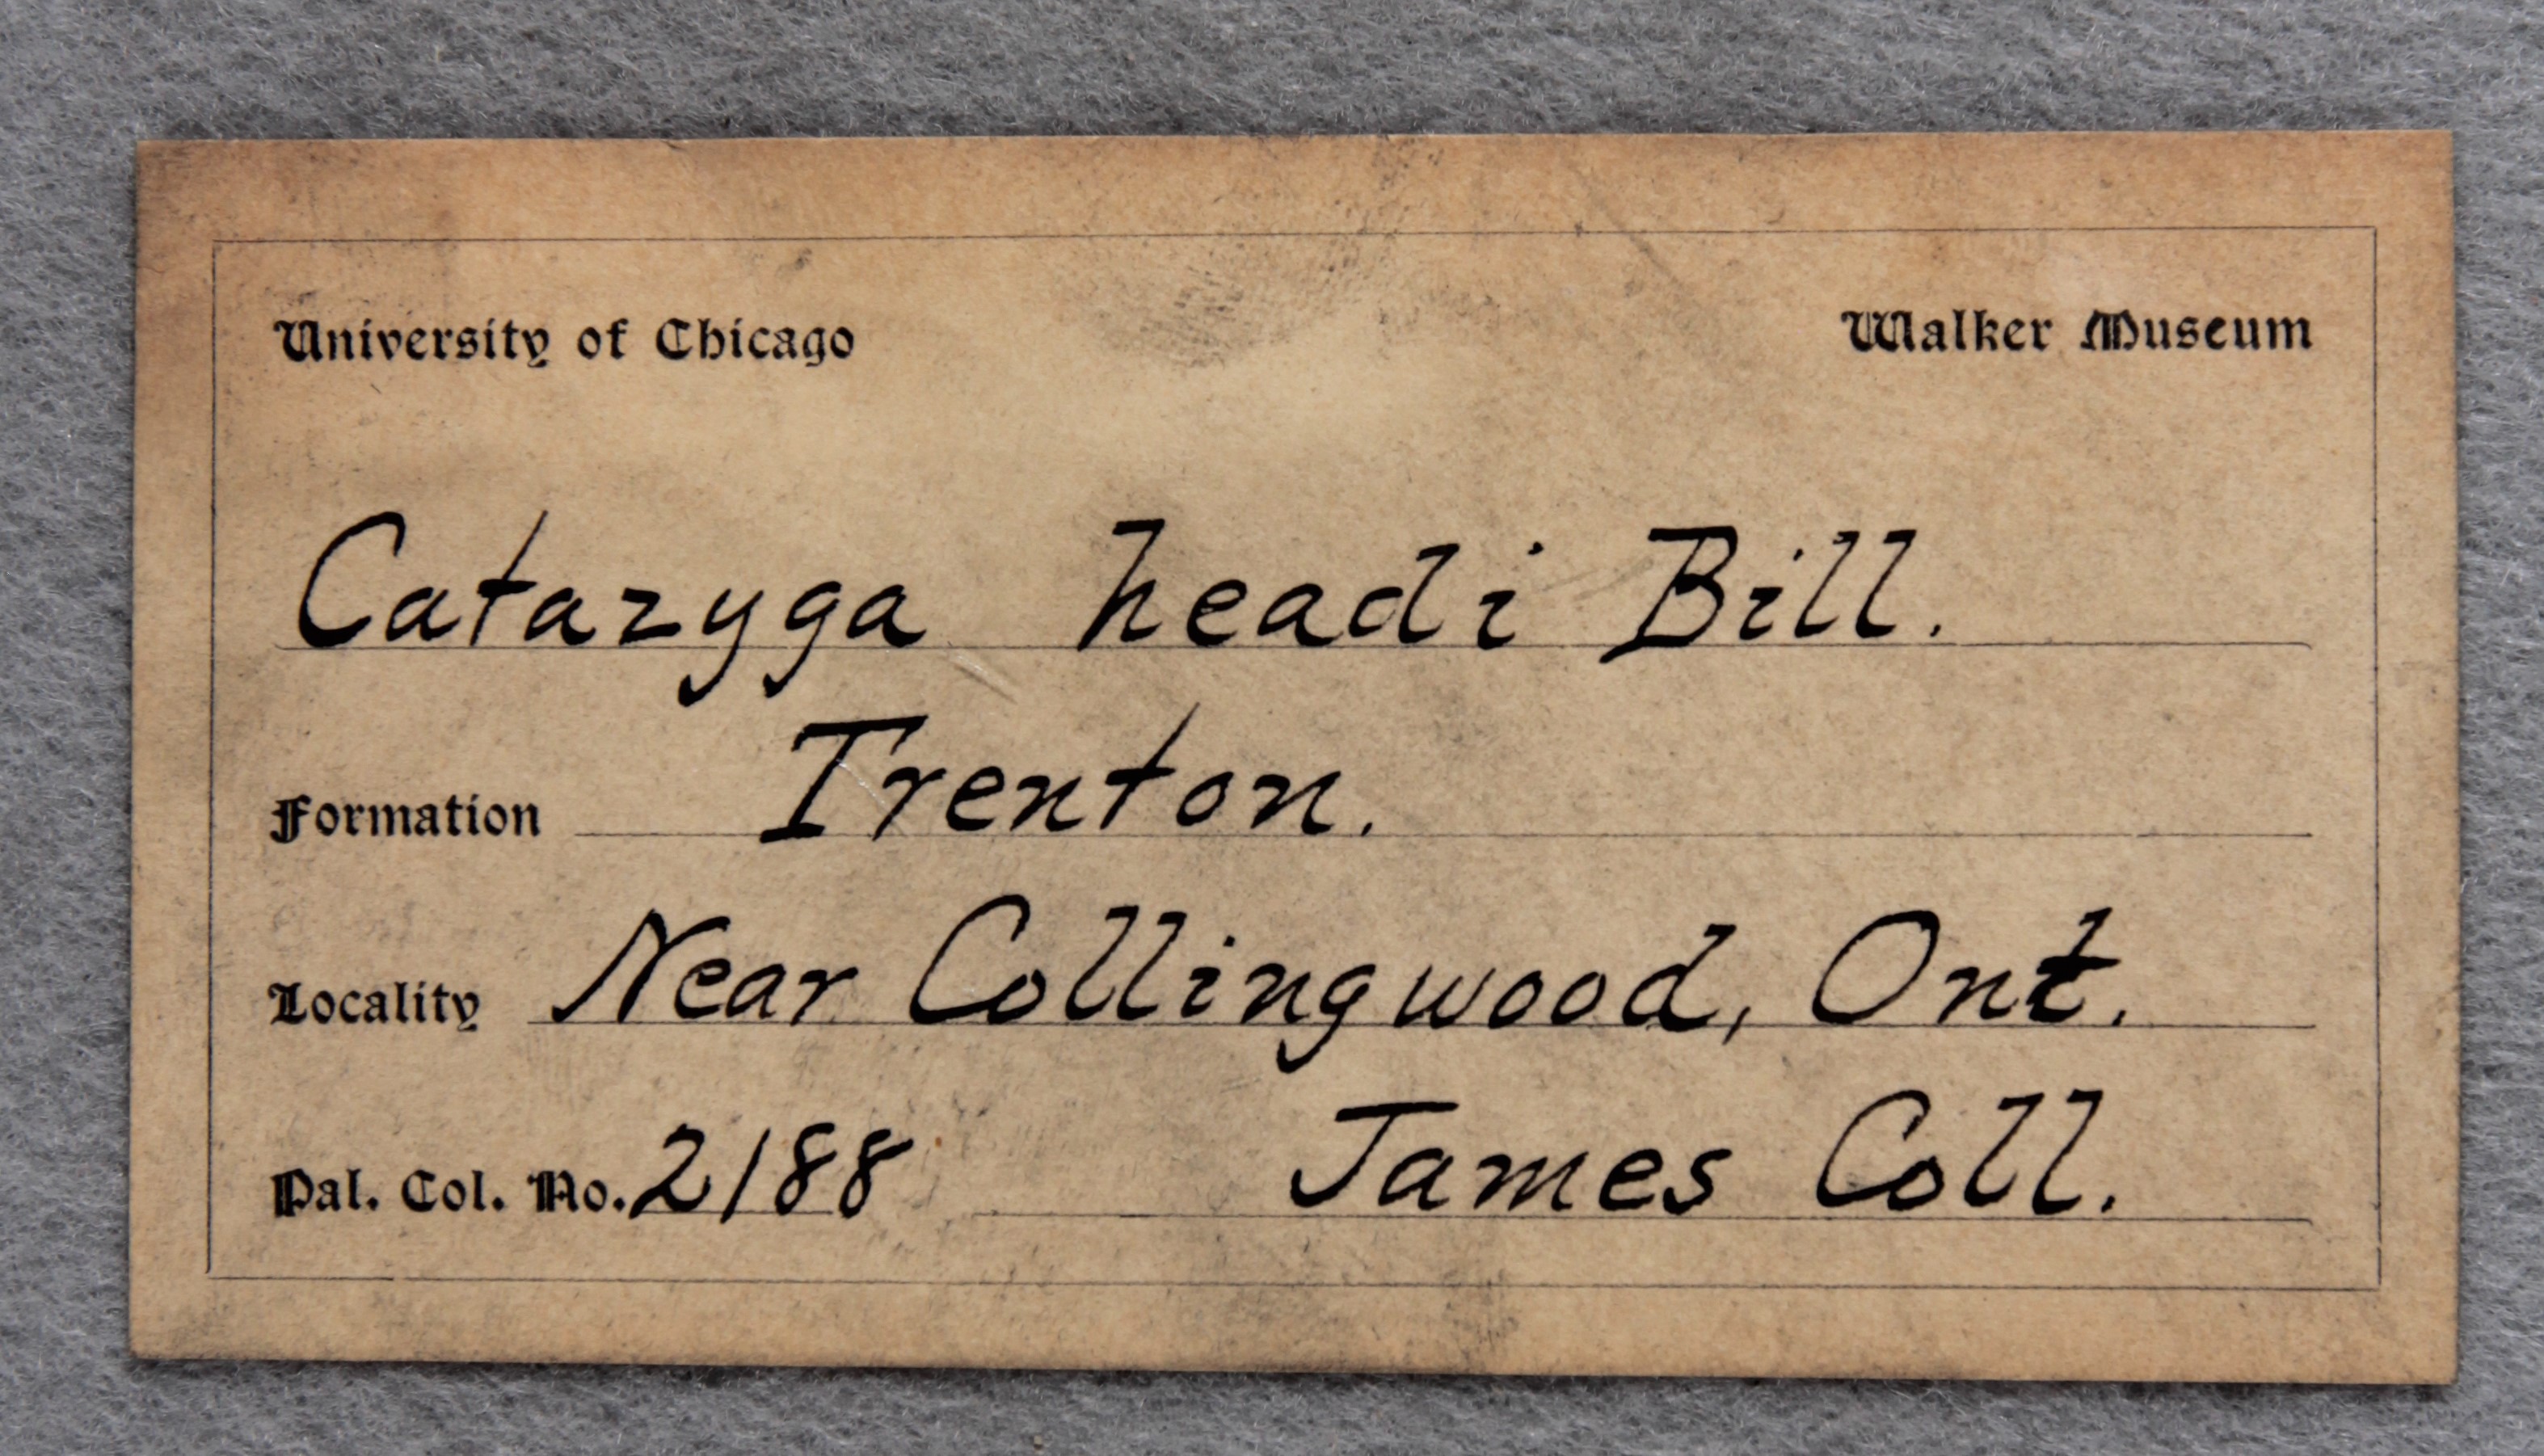 University of Chicago Walker Museum
Catazyga headi Bill.
Formation Trenton.
Locality Near Collingwood, Ont.
Pal. Col. No. 2188 James Coll.